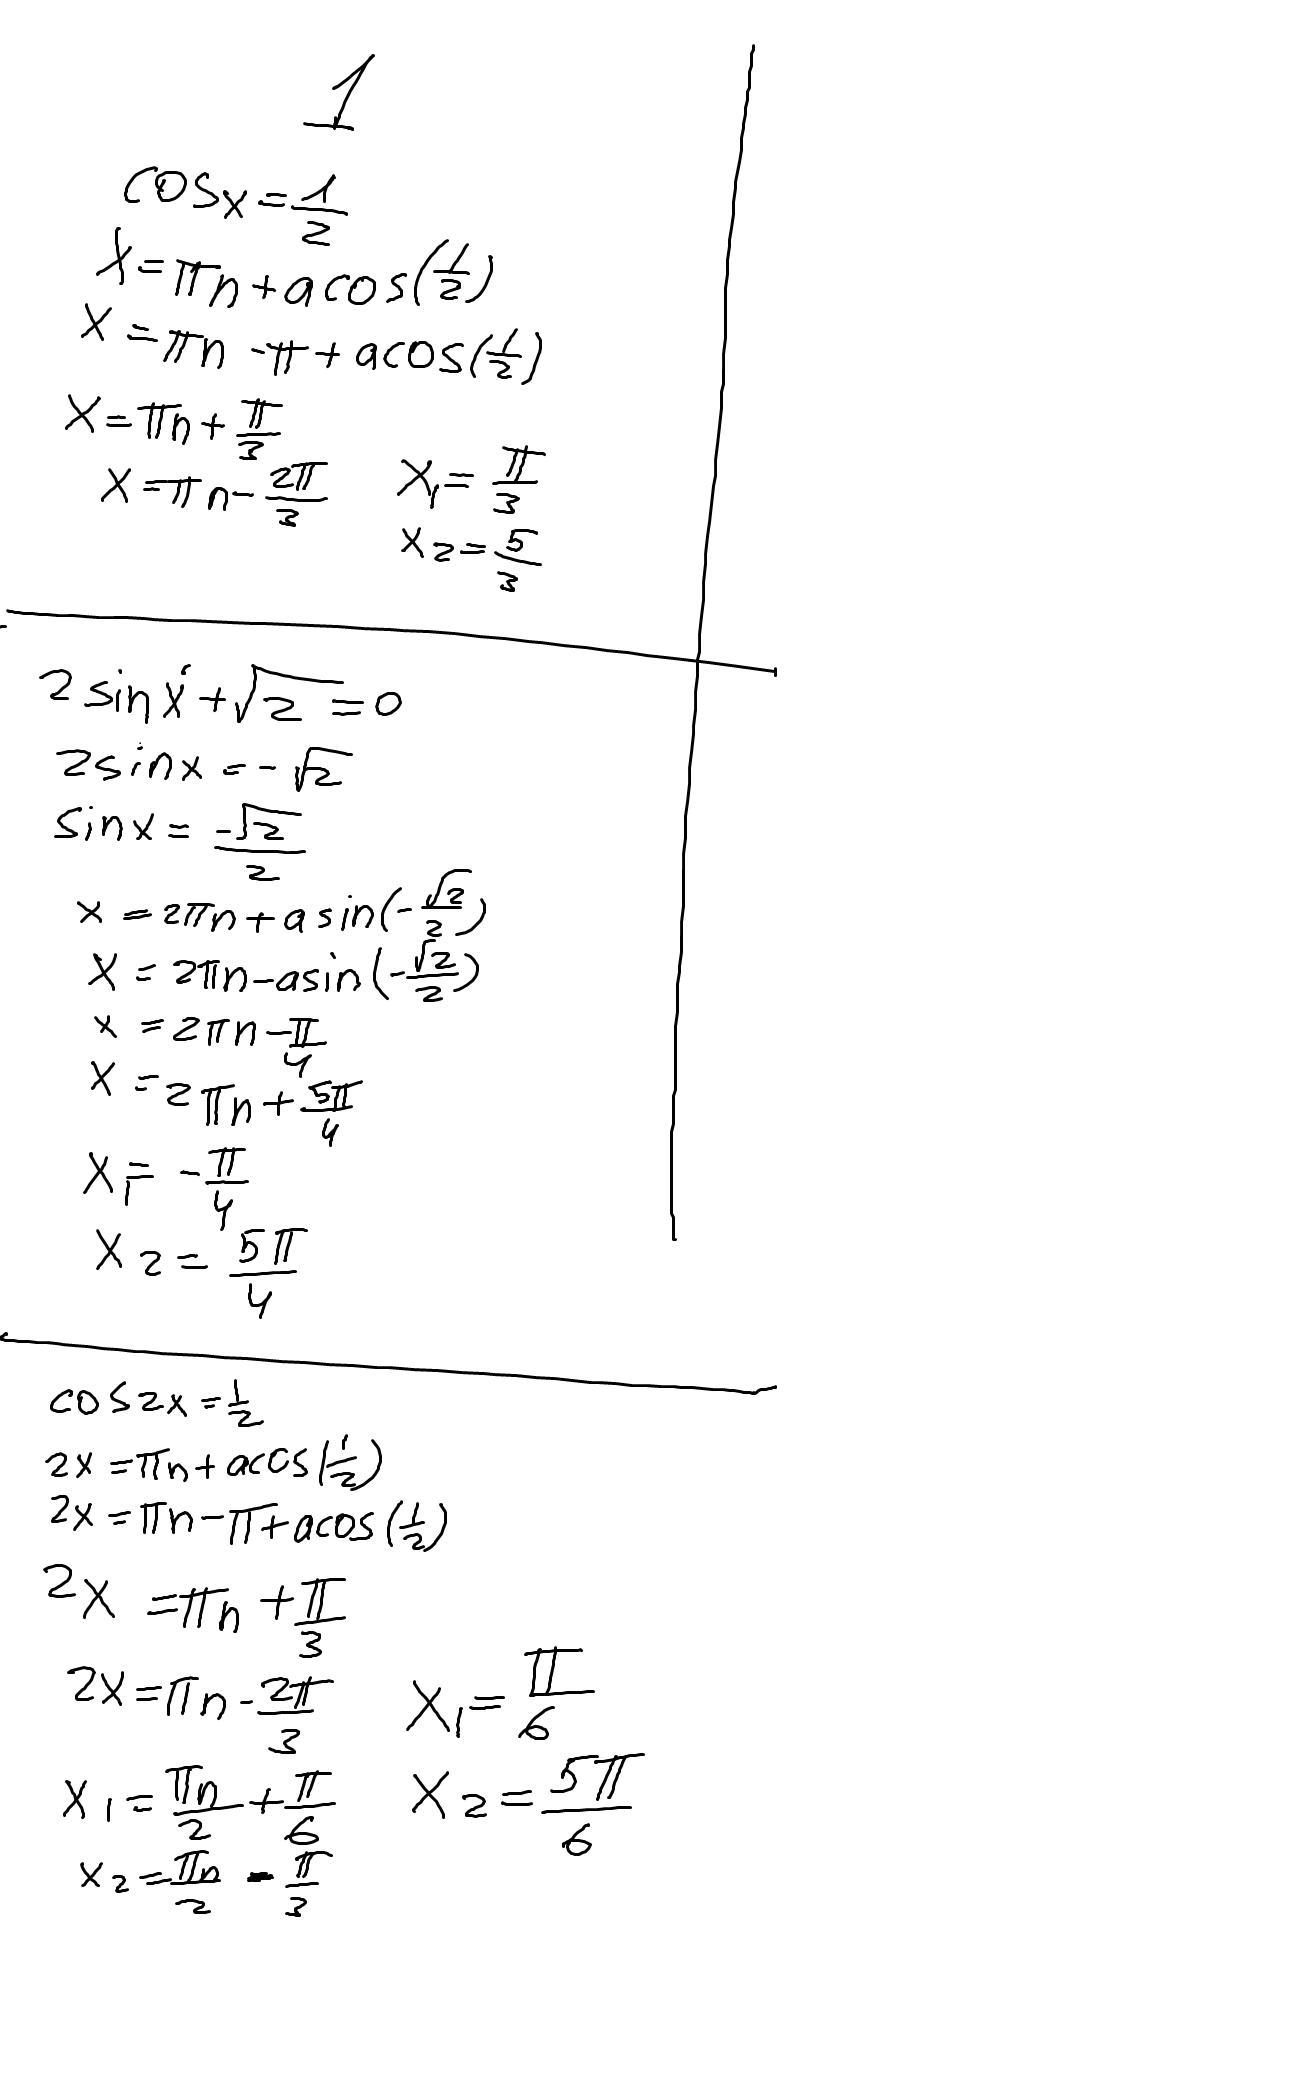 1
cosx = 1/2
x = πn + acos(1/2)
x = πn - π + acos(1/2)
x = πn + π/3
x = πn - 2π/3
x₁ = π/3
x₂ = 5/3
2sinx + √2 = 0
2sinx = -√2
sinx = -√2/2
x = 2πn + asin(-√2/2)
x = 2πn - asin(-√2/2)
x = 2πn - π/4
x = 2πn + 5π/4
x₁ = -π/4
x₂ = 5π/4
cos2x = 1/2
2x = πn + acos(1/2)
2x = πn - π + acos(1/2)
2x = πn + π/3
2x = πn - 2π/3
x₁ = πn/2 + π/6
x₂ = πn/2 - π/3
x₁ = π/6
x₂ = 5π/6